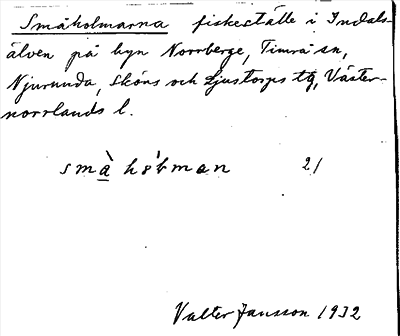 Småholmarna fiskeställe i Indals-
älven på byn Norrberge, Timrå sn,
Njurunda, Sköns och Ljustorps tg, Väster-
norrlands l.
2/
Valter Jansson 1932